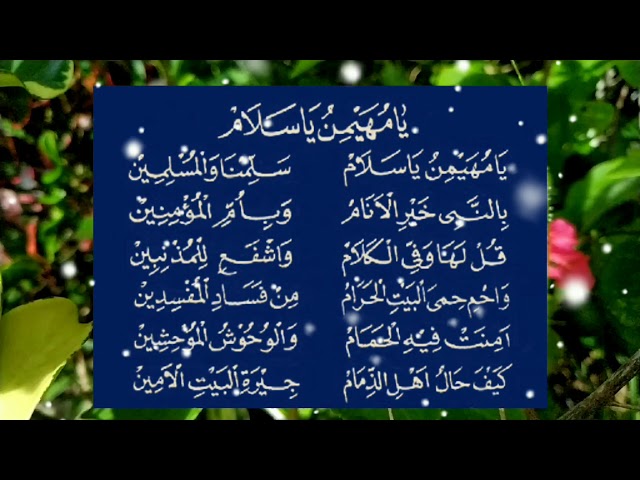 يَا مُهَيْمِنُ يَا سَلَامْ
يَا مُهَيْمِنُ يَا سَلَامْ سَلِّمْنَا وَالْمُسْلِمِيْنَ
بِالنَّبِى خَيْرِ الْاَنَامْ وَبِأُمِّ الْمُؤْمِنِيْنَ
قُلْ لَهَا وَفِى الْكَلَامْ وَاشْفَعِ لِلْمُذْنِبِيْنَ
وَاحْمِ حِمَى الْبَيْتِ الْحَرَامْ مِنْ فَسَادِ الْمُفْسِدِيْنَ
اٰمِنَتْ فِيْهِ الْحَمَامْ وَالْوُحُوْشُ الْمُوْحِشِيْنَ
كَيْفَ حَالُ اَهْلِ الذِّمَامْ جِيْرَةِ الْبَيْتِ الْاَمِيْنَ